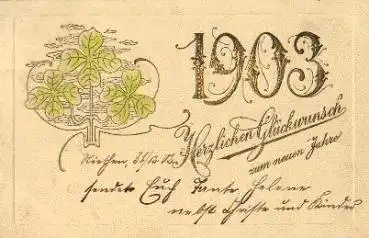 1903
Herzlichen Glückwunsch
zum neuen Jahre
sendet Euch Tante Helene
nebst und Kinder